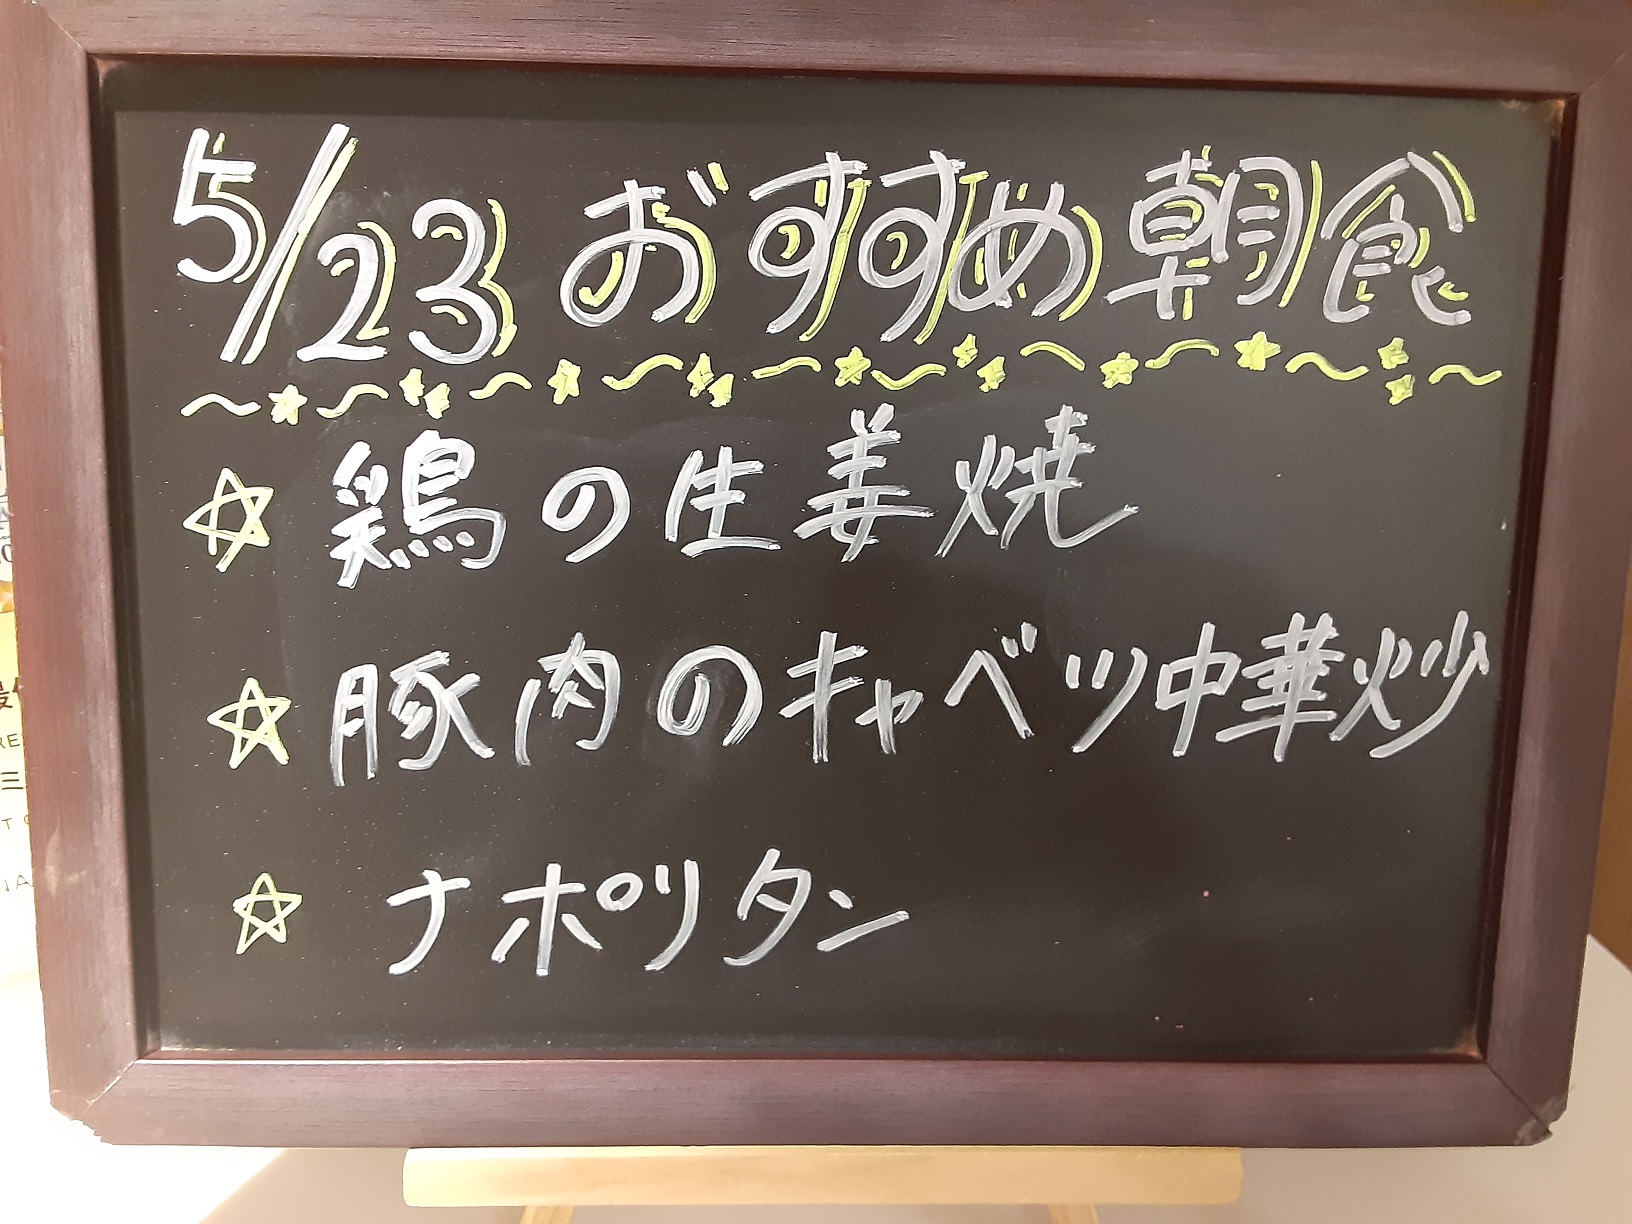 5/23 おすすめ朝食
☆ 鶏の生姜焼
☆ 豚肉のキャベツ中華炒
☆ ナポリタン